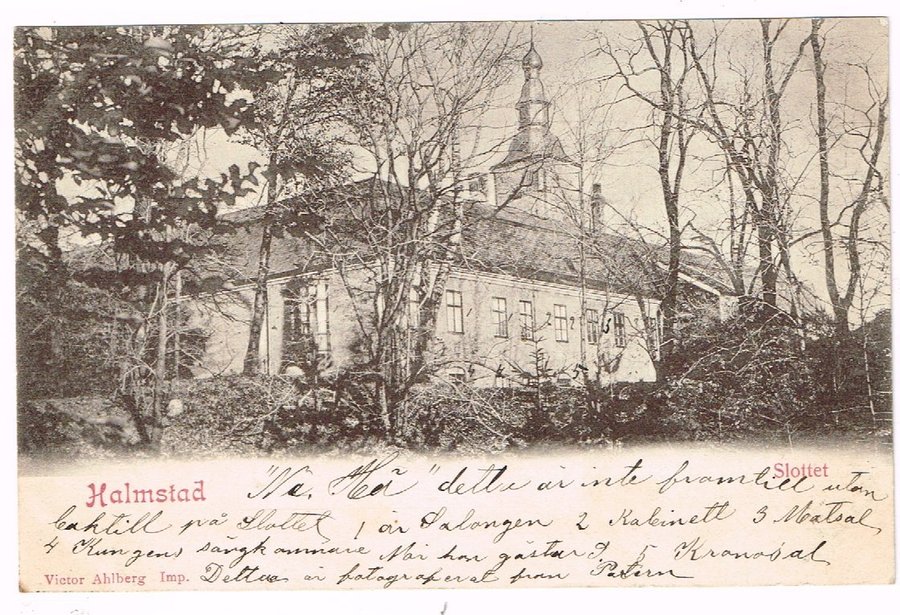 Slottet
Halmstad
"Na. Hå" dette är inte framtill utan
baktill på Slottet 1 är Salongen 2 Kabinett 3 Matsal
4 Kungens sängkammare När han gästar 5 Kronosal
Victor Ahlberg Imp.
Detta är fotograferat från
1 1 2 2 3
4 4 5